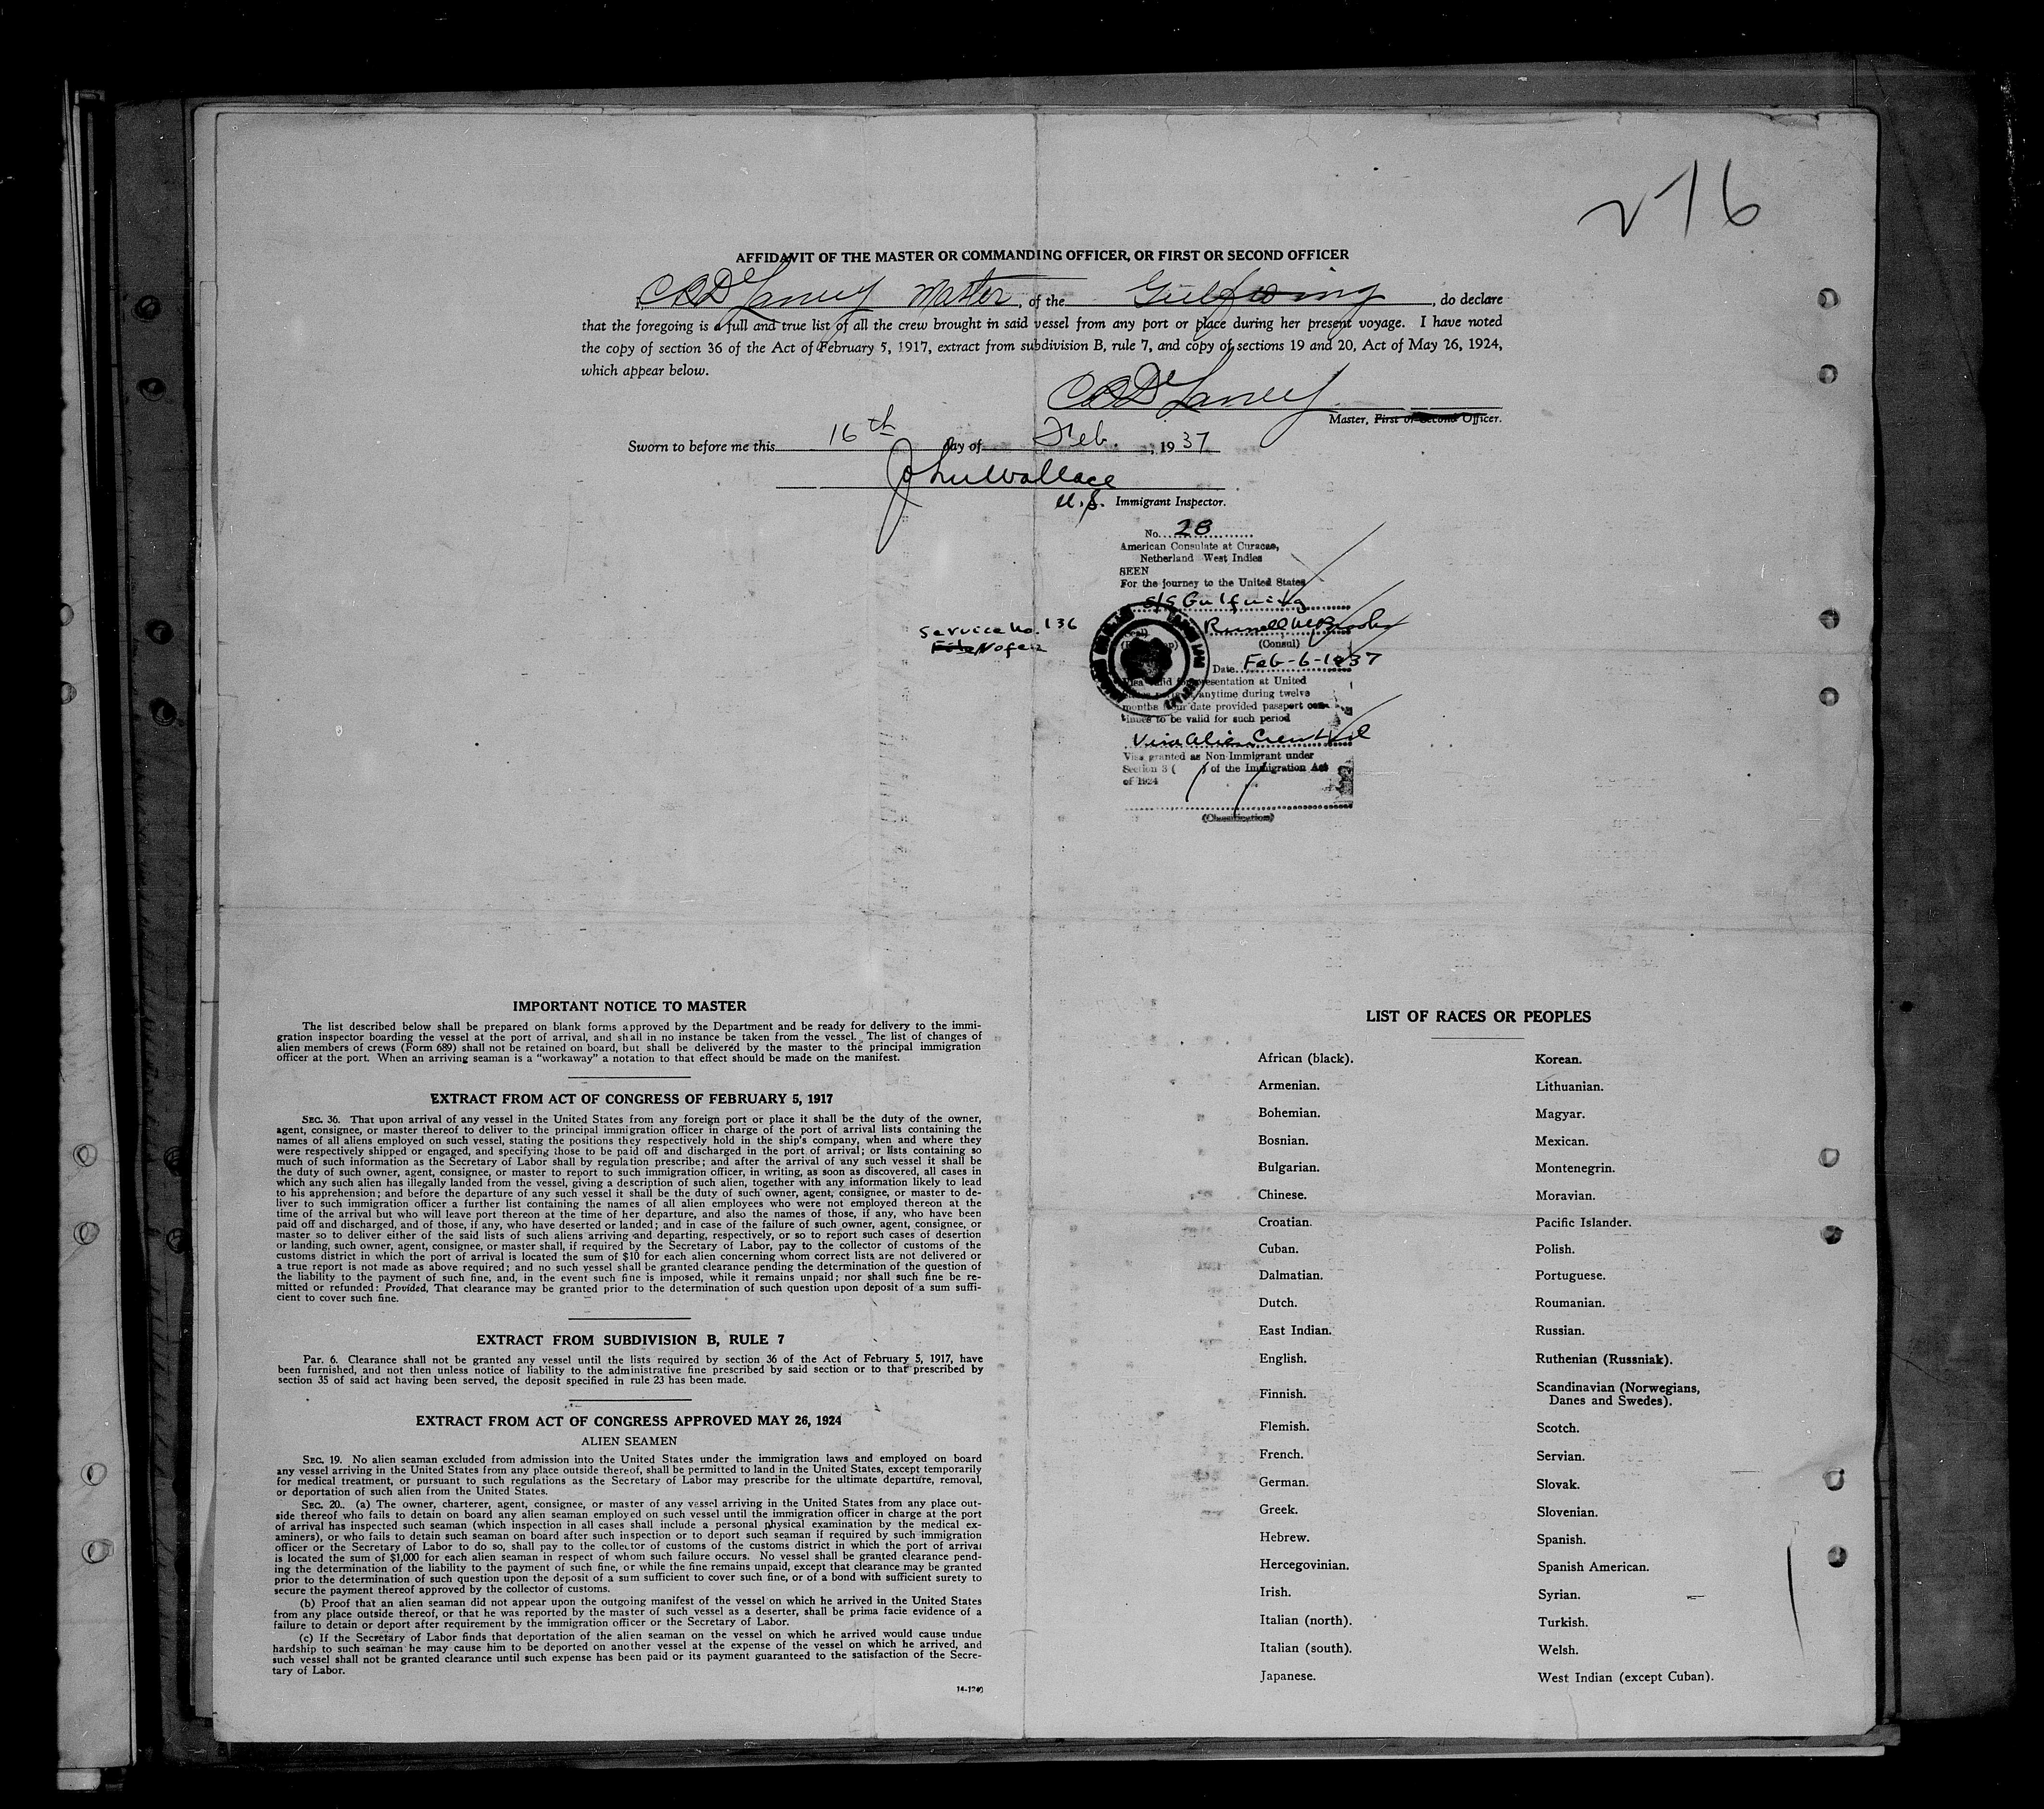 216
AFFIDAVIT OF THE MASTER OR COMMANDING OFFICER, OR FIRST OR SECOND OFFICER
I, Master, of the Gulfwing, do declare
that the foregoing is a full and true list of all the crew brought in said vessel from any port or place during her present voyage. I have noted
the copy of section 36 of the Act of February 5, 1917, extract from subdivision B, rule 7, and copy of sections 19 and 20, Act of May 26, 1924,
which appear below.
Master, First or Second Officer.
Sworn to before me this 16th day of Feb., 1937
John Wallace
U.S. Immigrant Inspector.
No. 28
American Consulate at Curacao,
Netherland West Indies
SEEN
For the journey to the United States
S/S Gulfwing
Service No. 136
(Consul)
No fee
Date Feb-6-1937
Visa valid for presentation at United
anytime during twelve
months from date provided passport con-
tinues to be valid for such period
Visa granted as Non-Immigrant under
Section 3 ( ) of the Immigration Act
of 1924
(Classification)
IMPORTANT NOTICE TO MASTER
The list described below shall be prepared on blank forms approved by the Department and be ready for delivery to the immi-
gration inspector boarding the vessel at the port of arrival, and shall in no instance be taken from the vessel. The list of changes of
alien members of crews (Form 689) shall not be retained on board, but shall be delivered by the master to the principal immigration
officer at the port. When an arriving seaman is a "workaway" a notation to that effect should be made on the manifest.
EXTRACT FROM ACT OF CONGRESS OF FEBRUARY 5, 1917
SEC. 36. That upon arrival of any vessel in the United States from any foreign port or place it shall be the duty of the owner,
agent, consignee, or master thereof to deliver to the principal immigration officer in charge of the port of arrival lists containing the
names of all aliens employed on such vessel, stating the positions they respectively hold in the ship's company, when and where they
were respectively shipped or engaged, and specifying those to be paid off and discharged in the port of arrival; or lists containing so
much of such information as the Secretary of Labor shall by regulation prescribe; and after the arrival of any such vessel it shall be
the duty of such owner, agent, consignee, or master to report to such immigration officer, in writing, as soon as discovered, all cases in
which any such alien has illegally landed from the vessel, giving a description of such alien, together with any information likely to lead
to his apprehension; and before the departure of any such vessel it shall be the duty of such owner, agent, consignee, or master to de-
liver to such immigration officer a further list containing the names of all alien employees who were not employed thereon at the
time of the arrival but who will leave port thereon at the time of her departure, and also the names of those, if any, who have been
paid off and discharged, and of those, if any, who have deserted or landed; and in case of the failure of such owner, agent, consignee, or
master so to deliver either of the said lists of such aliens arriving and departing, respectively, or so to report such cases of desertion
or landing, such owner, agent, consignee, or master shall, if required by the Secretary of Labor, pay to the collector of customs of the
customs district in which the port of arrival is located the sum of $10 for each alien concerning whom correct lists are not delivered or
a true report is not made as above required; and no such vessel shall be granted clearance pending the determination of the question of
the liability to the payment of such fine, and, in the event such fine is imposed, while it remains unpaid; nor shall such fine be re-
mitted or refunded: Provided, That clearance may be granted prior to the determination of such question upon deposit of a sum suffi-
cient to cover such fine.
EXTRACT FROM SUBDIVISION B, RULE 7
Par. 6. Clearance shall not be granted any vessel until the lists required by section 36 of the Act of February 5, 1917, have
been furnished, and not then unless notice of liability to the administrative fine prescribed by said section or to that prescribed by
section 35 of said act having been served, the deposit specified in rule 23 has been made.
EXTRACT FROM ACT OF CONGRESS APPROVED MAY 26, 1924
ALIEN SEAMEN
SEC. 19. No alien seaman excluded from admission into the United States under the immigration laws and employed on board
any vessel arriving in the United States from any place outside thereof, shall be permitted to land in the United States, except temporarily
for medical treatment, or pursuant to such regulations as the Secretary of Labor may prescribe for the ultimate departure, removal,
or deportation of such alien from the United States.
SEC. 20. (a) The owner, charterer, agent, consignee, or master of any vessel arriving in the United States from any place out-
side thereof who fails to detain on board any alien seaman employed on such vessel until the immigration officer in charge at the port
of arrival has inspected such seaman (which inspection in all cases shall include a personal physical examination by the medical ex-
aminers), or who fails to detain such seaman on board after such inspection or to deport such seaman if required by such immigration
officer or the Secretary of Labor to do so, shall pay to the collector of customs of the customs district in which the port of arrival
is located the sum of $1,000 for each alien seaman in respect of whom such failure occurs. No vessel shall be granted clearance pend-
ing the determination of the liability to the payment of such fine, or while the fine remains unpaid, except that clearance may be granted
prior to the determination of such question upon the deposit of a sum sufficient to cover such fine, or of a bond with sufficient surety to
secure the payment thereof approved by the collector of customs.
(b) Proof that an alien seaman did not appear upon the outgoing manifest of the vessel on which he arrived in the United States
from any place outside thereof, or that he was reported by the master of such vessel as a deserter, shall be prima facie evidence of a
failure to detain or deport after requirement by the immigration officer or the Secretary of Labor.
(c) If the Secretary of Labor finds that deportation of the alien seaman on the vessel on which he arrived would cause undue
hardship to such seaman he may cause him to be deported on another vessel at the expense of the vessel on which he arrived, and
such vessel shall not be granted clearance until such expense has been paid or its payment guaranteed to the satisfaction of the Secre-
tary of Labor.
LIST OF RACES OR PEOPLES
African (black).
Armenian.
Bohemian.
Bosnian.
Bulgarian.
Chinese.
Croatian.
Cuban.
Dalmatian.
Dutch.
East Indian.
English.
Finnish.
Flemish.
French.
German.
Greek.
Hebrew.
Hercegovinian.
Irish.
Italian (north).
Italian (south).
Japanese.
Korean.
Lithuanian.
Magyar.
Mexican.
Montenegrin.
Moravian.
Pacific Islander.
Polish.
Portuguese.
Roumanian.
Russian.
Ruthenian (Russniak).
Scandinavian (Norwegians,
Danes and Swedes).
Scotch.
Servian.
Slovak.
Slovenian.
Spanish.
Spanish American.
Syrian.
Turkish.
Welsh.
West Indian (except Cuban).